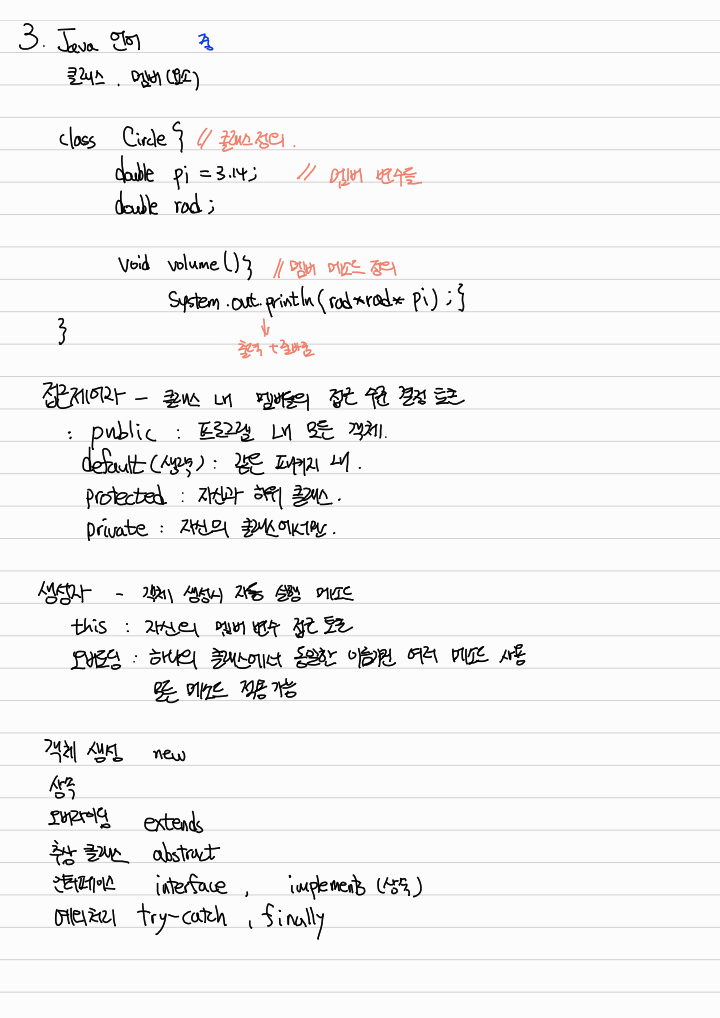 3. Java 언어 중
클래스 . 멤버(요소)
class Circle { // 클래스 정의.
double pi = 3.14; // 멤버 변수들
double rad;
void volume(){ // 멤버 메소드 정의
System.out.println(rad*rad* pi);}
}
↓
출력 + 줄바꿈
접근제어자 - 클래스 내 멤버들의 접근 수준 결정 토큰
: public : 프로그램 내 모든 객체.
default(생략) : 같은 패키지 내.
protected : 자신과 하위 클래스.
private : 자신의 클래스에서만.
생성자 - 객체 생성시 자동 실행 메소드
this : 자신의 멤버 변수 접근 토큰
오버로딩 : 하나의 클래스에서 동일한 이름가진 여러 메소드 사용
모든 메소드 적용가능
객체 생성 new
상속
오버라이딩 extends
추상 클래스 abstract
인터페이스 interface , implements (상속)
예외처리 try-catch , finally